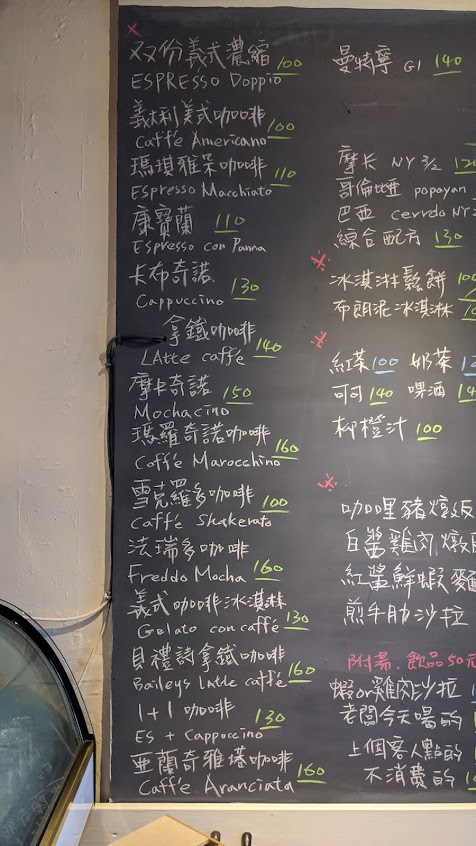 双份義式濃縮 100
ESPRESSO Doppio
義大利美式咖啡
Caffé Americano 100
瑪琪雅朵咖啡
Espresso Macchiato 110
康寶蘭 110
Espresso con Panna
卡布奇諾
Cappuccino 130
拿鐵咖啡
LAtte caffé 140
摩卡奇諾 150
Mochacino
瑪羅奇諾咖啡
Caffé Marocchino 160
雪克羅多咖啡
Caffé Shakerato 100
法瑞多咖啡
Freddo Mocha 160
義式咖啡冰淇淋
Gelato con caffé 130
貝禮詩拿鐵咖啡
Baileys Latte caffé 160
1+1 咖啡
Es + Cappuccino 130
亚蘭奇雅塔咖啡
Caffe Aranciata 160
曼特寧 G1 140
摩卡 NY 3/2
哥倫比亞 popayan
巴西 cerrdo NY
綜合配方 130
冰淇淋鬆餅
布朗泥冰淇淋
紅茶 100 奶茶
可可 140 啤酒
柳橙汁 100
咖哩豬燉飯
白醬雞肉燉
紅醬鮮蝦麵
煎牛肋沙拉
附湯.飲品50元
蝦or雞肉沙拉
老闆今天喝的
上個客人點的
不消費的